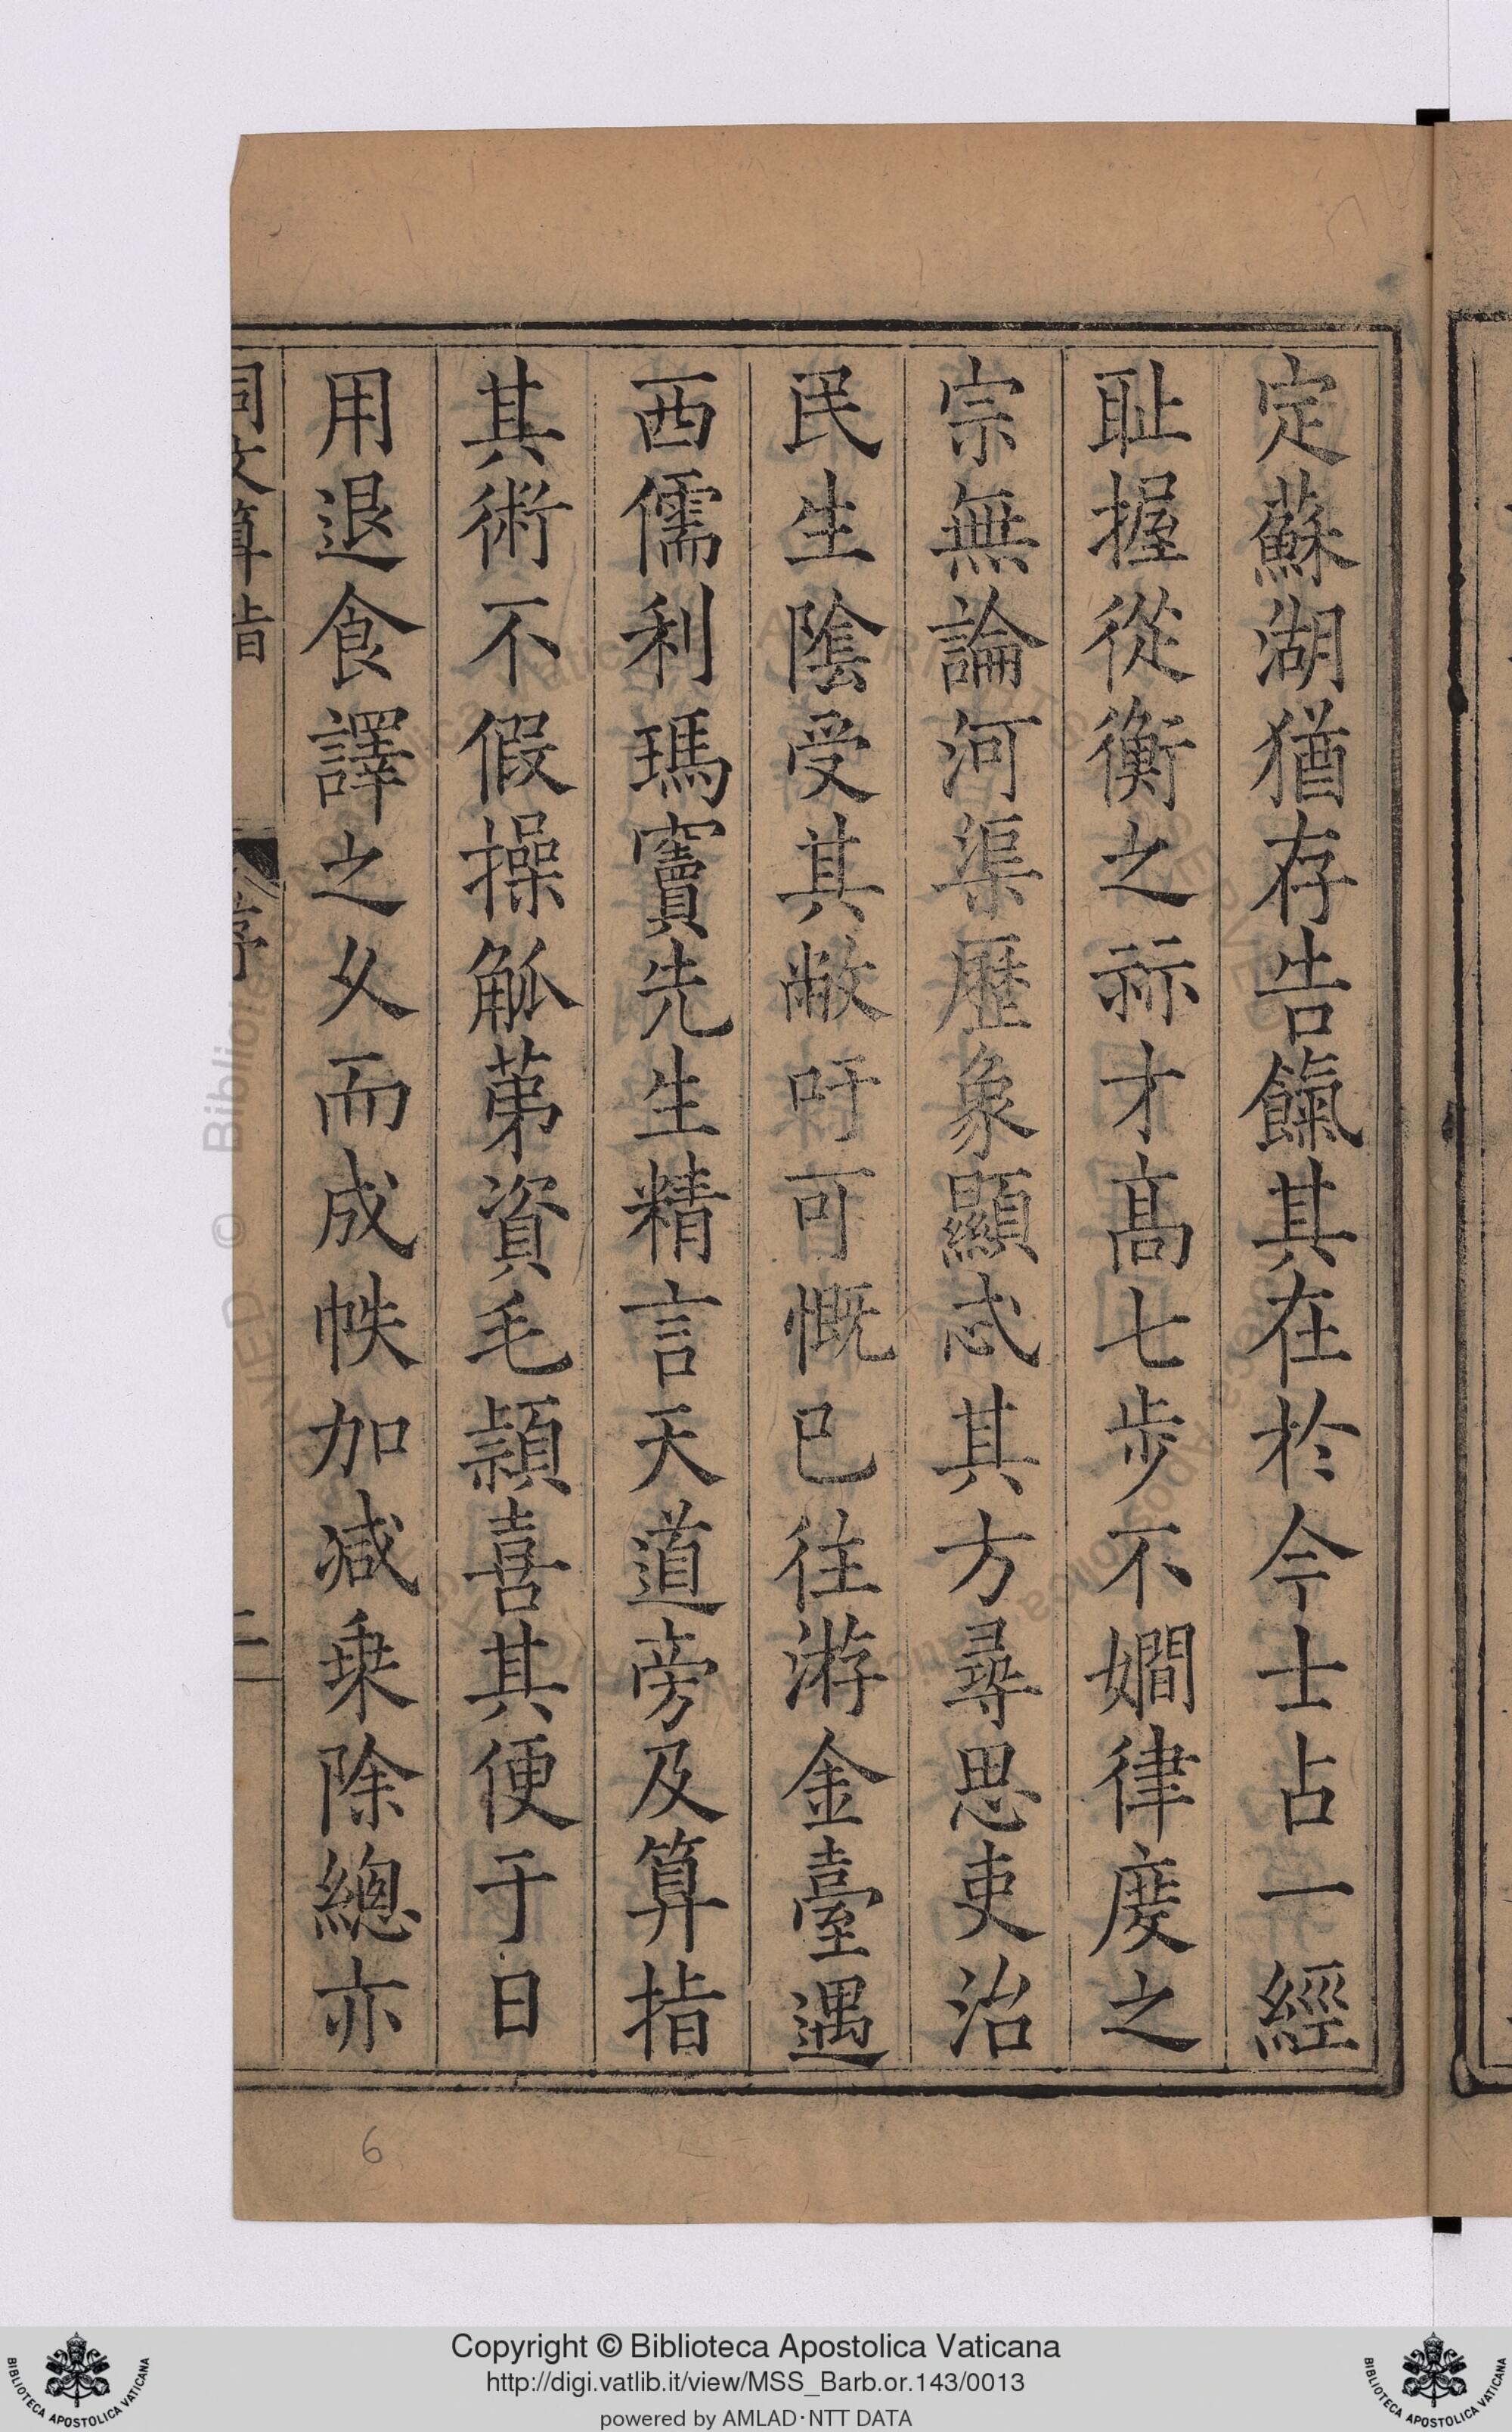 定蘇湖猶存告餼其在於今士占一經
耻握從衡之祘才高七步不嫺律度之
宗無論河渠歷象顯忒其方尋思吏治
民生陰受其敝吁可慨已往游金臺遇
西儒利瑪竇先生精言天道旁及算指
其術不假操觚第資毛頴喜其便于日
用退食譯之久而成帙加减乗除總亦
同文算指
序
二
6
Copyright © Biblioteca Apostolica Vaticana
http://digi.vatlib.it/view/MSS_Barb.or.143/0013
powered by AMLAD·NTT DATA
BIBLIOTECA APOSTOLICA VATICANA
BIBLIOTECA APOSTOLICA VATICANA